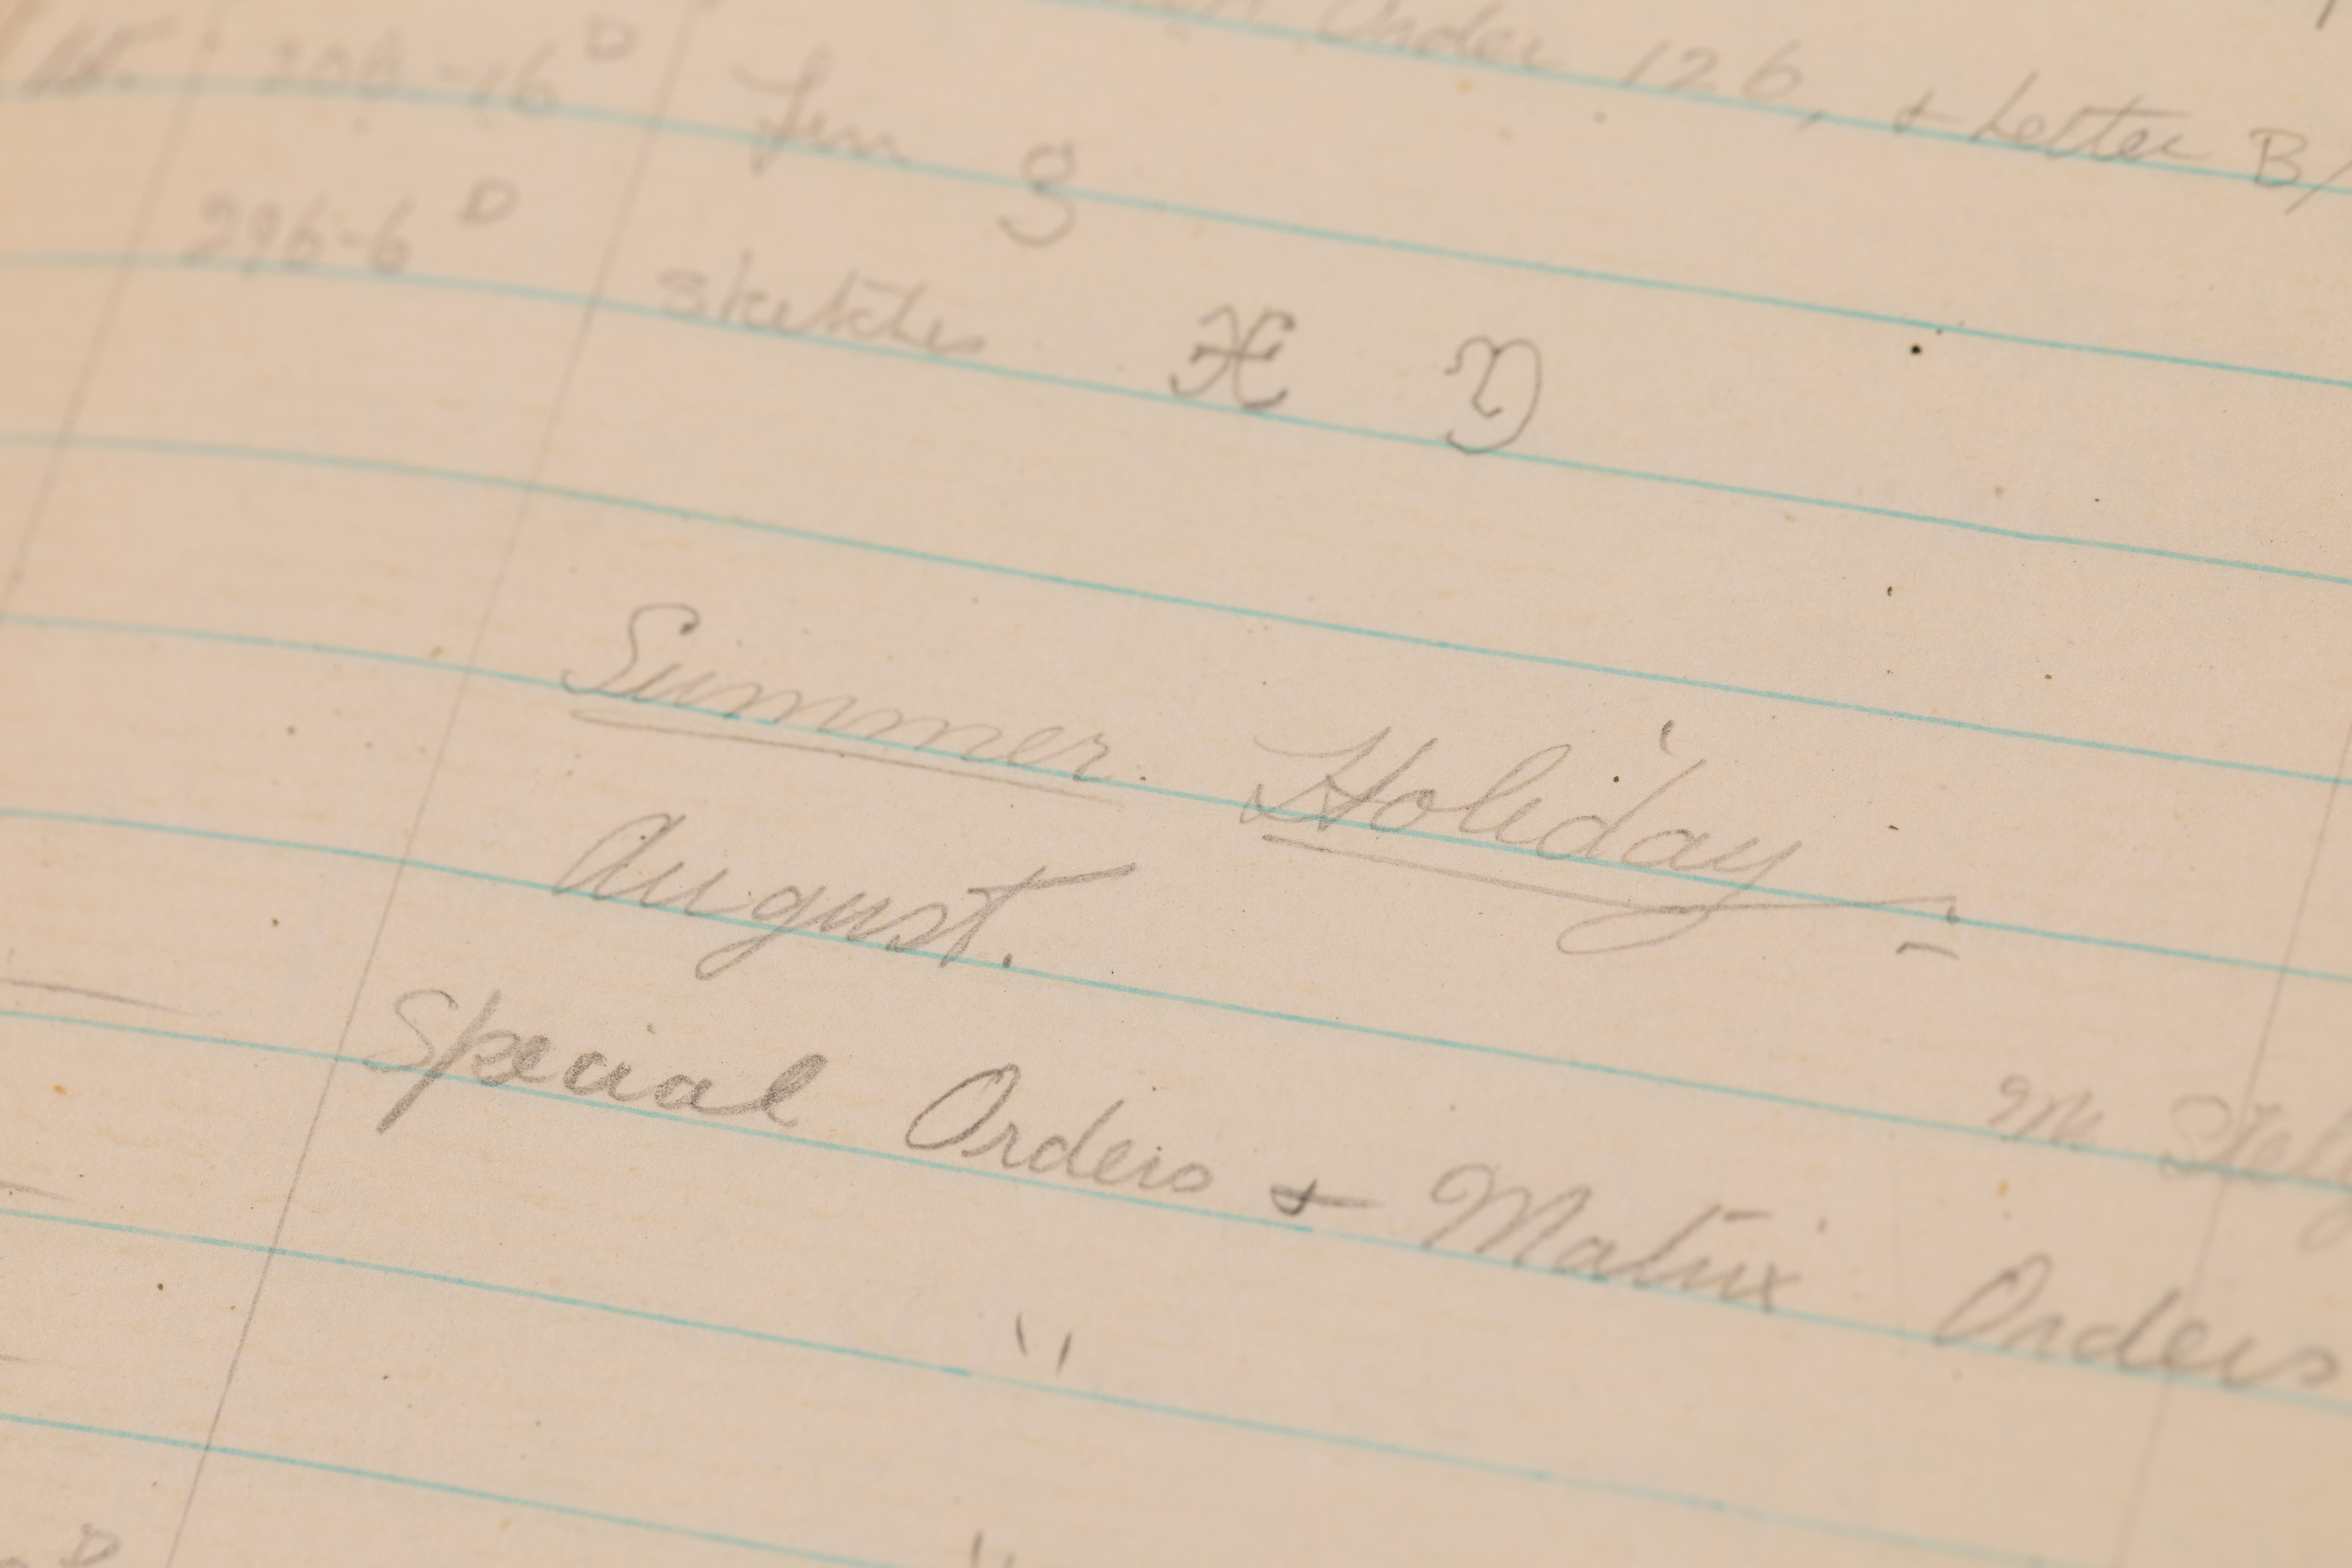 Order 126, & Letter B/
g
296-6 D sketches ℋ
Summer Holiday -
August.
Special Orders & Matrix Orders
"
"
D